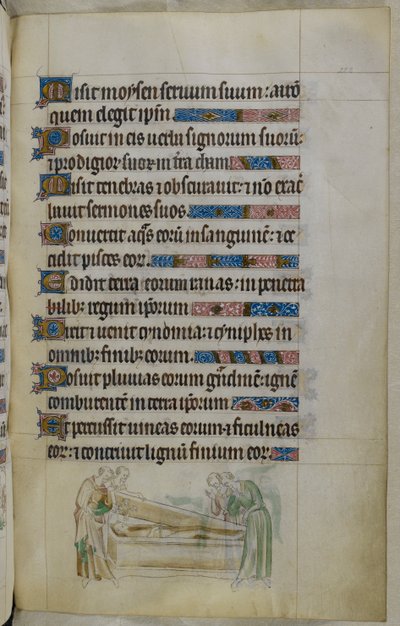 Misit moysen seruum suum: aaro
quem elegit ipm.
Posuit in eis uerba signorum suoru:
& prodigior suor in tra cham.
Misit tenebras & obscurauit: & no exac
buit sermones suos.
Conuertit aqs eoru in sanguine: & oc
cidit pisces eor.
Edidit terra eorum ranas: in penetra
bilib regum ipsorum
Dixit & uenit cynomia: & cyniphes in
omnib: finib: eorum.
Posuit pluuias eorum gndinem: igne
comburentem in terra ipsorum
Et percussit uineas eorum & ficulneas
eor: & contriuit lignu finium eor.